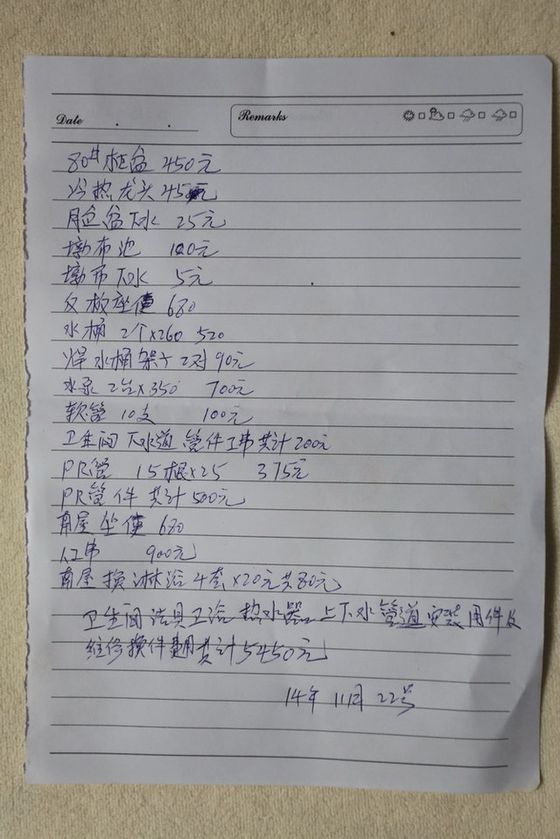 Date
Remarks
80# 柜盆 450元
冷热龙头 45元
脸盆下水 25元
墩布池 120元
墩布下水 5元
反板座便 680
水桶 2个×260 520
焊水桶架子2对90元
水泵 2台×350 700元
软管 10支 100元
卫生间下水道管件工带共计200元
PR管 15根×25 375元
PR管件共计500元
南屋坐便 680
人工带 900元
南屋换淋浴4套×20元共80元
卫生间洁具卫浴热水器上下水管道安装用件及
维修换件费用共计5450元
14年 11月 22号